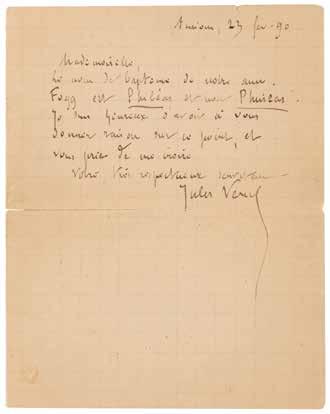 Amiens, 23 fev. 90
Mademoiselle,
Le nom de baptême de notre ami
Fogg est Philéas et non Phineas.
Je suis heureux d'avoir à vous
donner raison sur ce point, et
vous prie de me croire
Votre très respectueux serviteur
Jules Verne